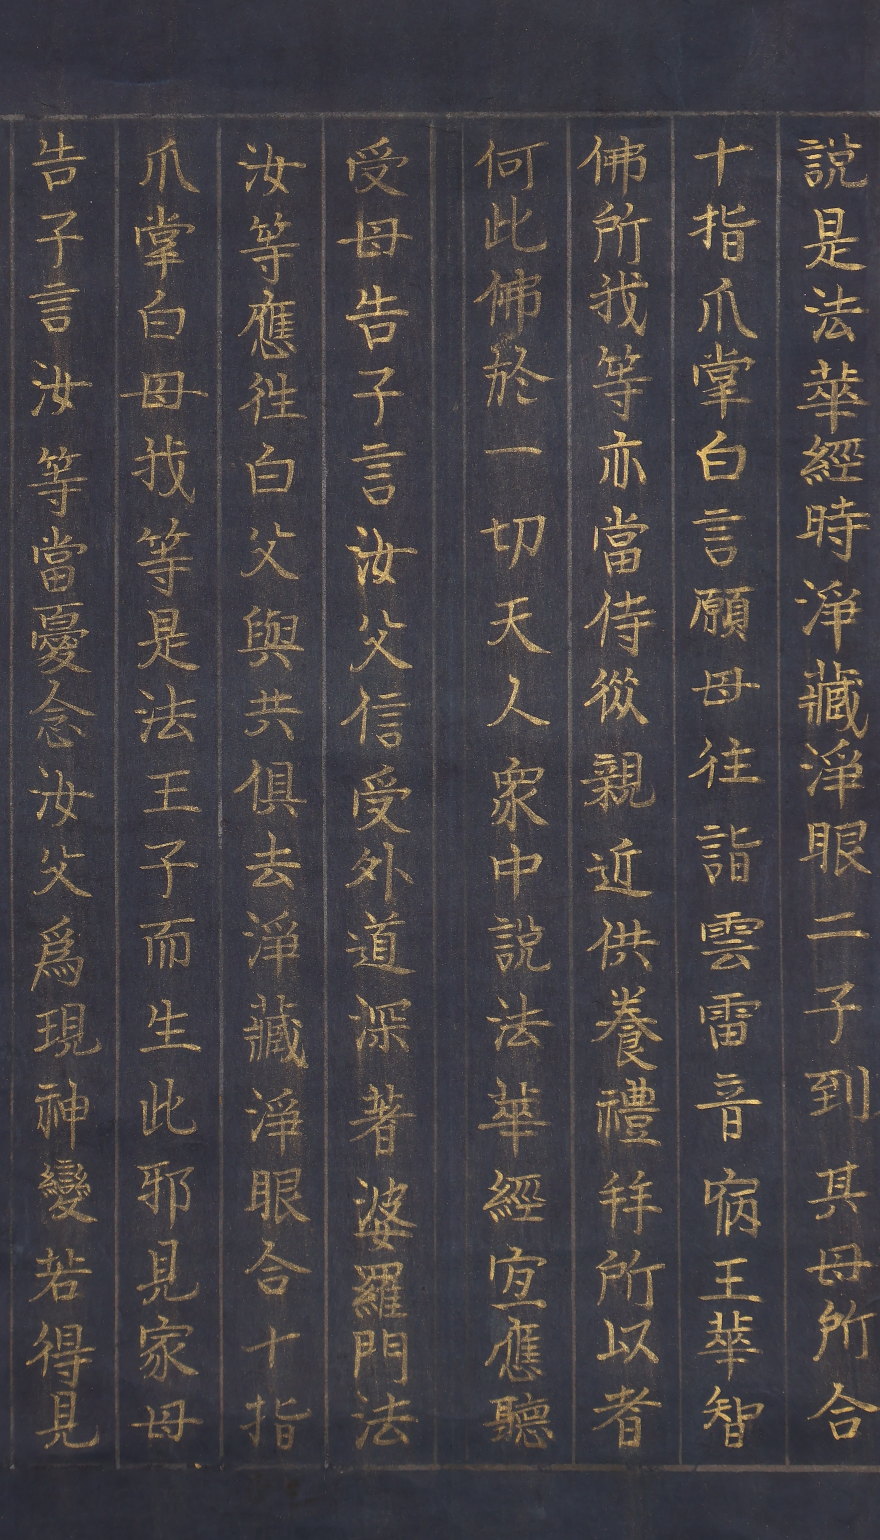 說是法華經時淨藏淨眼二子到其母所合
十指爪掌白言願母往詣雲雷音宿王華智
佛所我等亦當侍從親近供養禮拜所以者
何此佛於一切天人衆中說法華經宜應聽
受母告子言汝父信受外道深著婆羅門法
汝等應往白父與共俱去淨藏淨眼合十指
爪掌白母我等是法王子而生此邪見家母
告子言汝等當憂念汝父爲現神變若得見